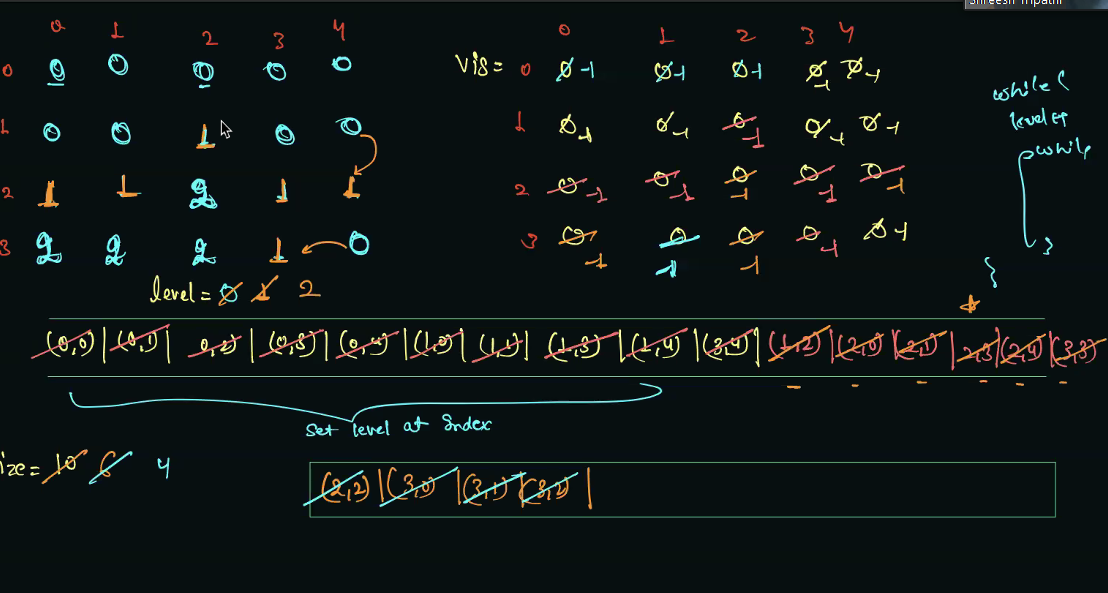 Shreesh Tripathi
0 1 2 3 4
0 0 0 0 0 0
1 0 0 1 0 0
2 1 1 2 1 1
3 2 2 2 1 0
level = 0 1 2
0 1 2 3 4
vis = 0 0 -1 0 -1 0 -1 0 -1 0 -1
1 0 -1 0 -1 0 -1 0 -1 0 -1
2 0 -1 0 -1 0 -1 0 -1 0 -1
3 0 -1 0 -1 0 -1 0 -1 0 -1
while {
while
}
}
(0,0) | (0,1) | 0,2) | (0,3) | (0,4) | (1,0) | (1,1) | (1,3) | (1,4) | (3,4) | (1,2) | (2,0) | (2,1) | 2,3 | (2,4) | (3,3)
Set level at Index
ize = 10 6 4
(2,2) | (3,0) | (3,1) | (3,2) |